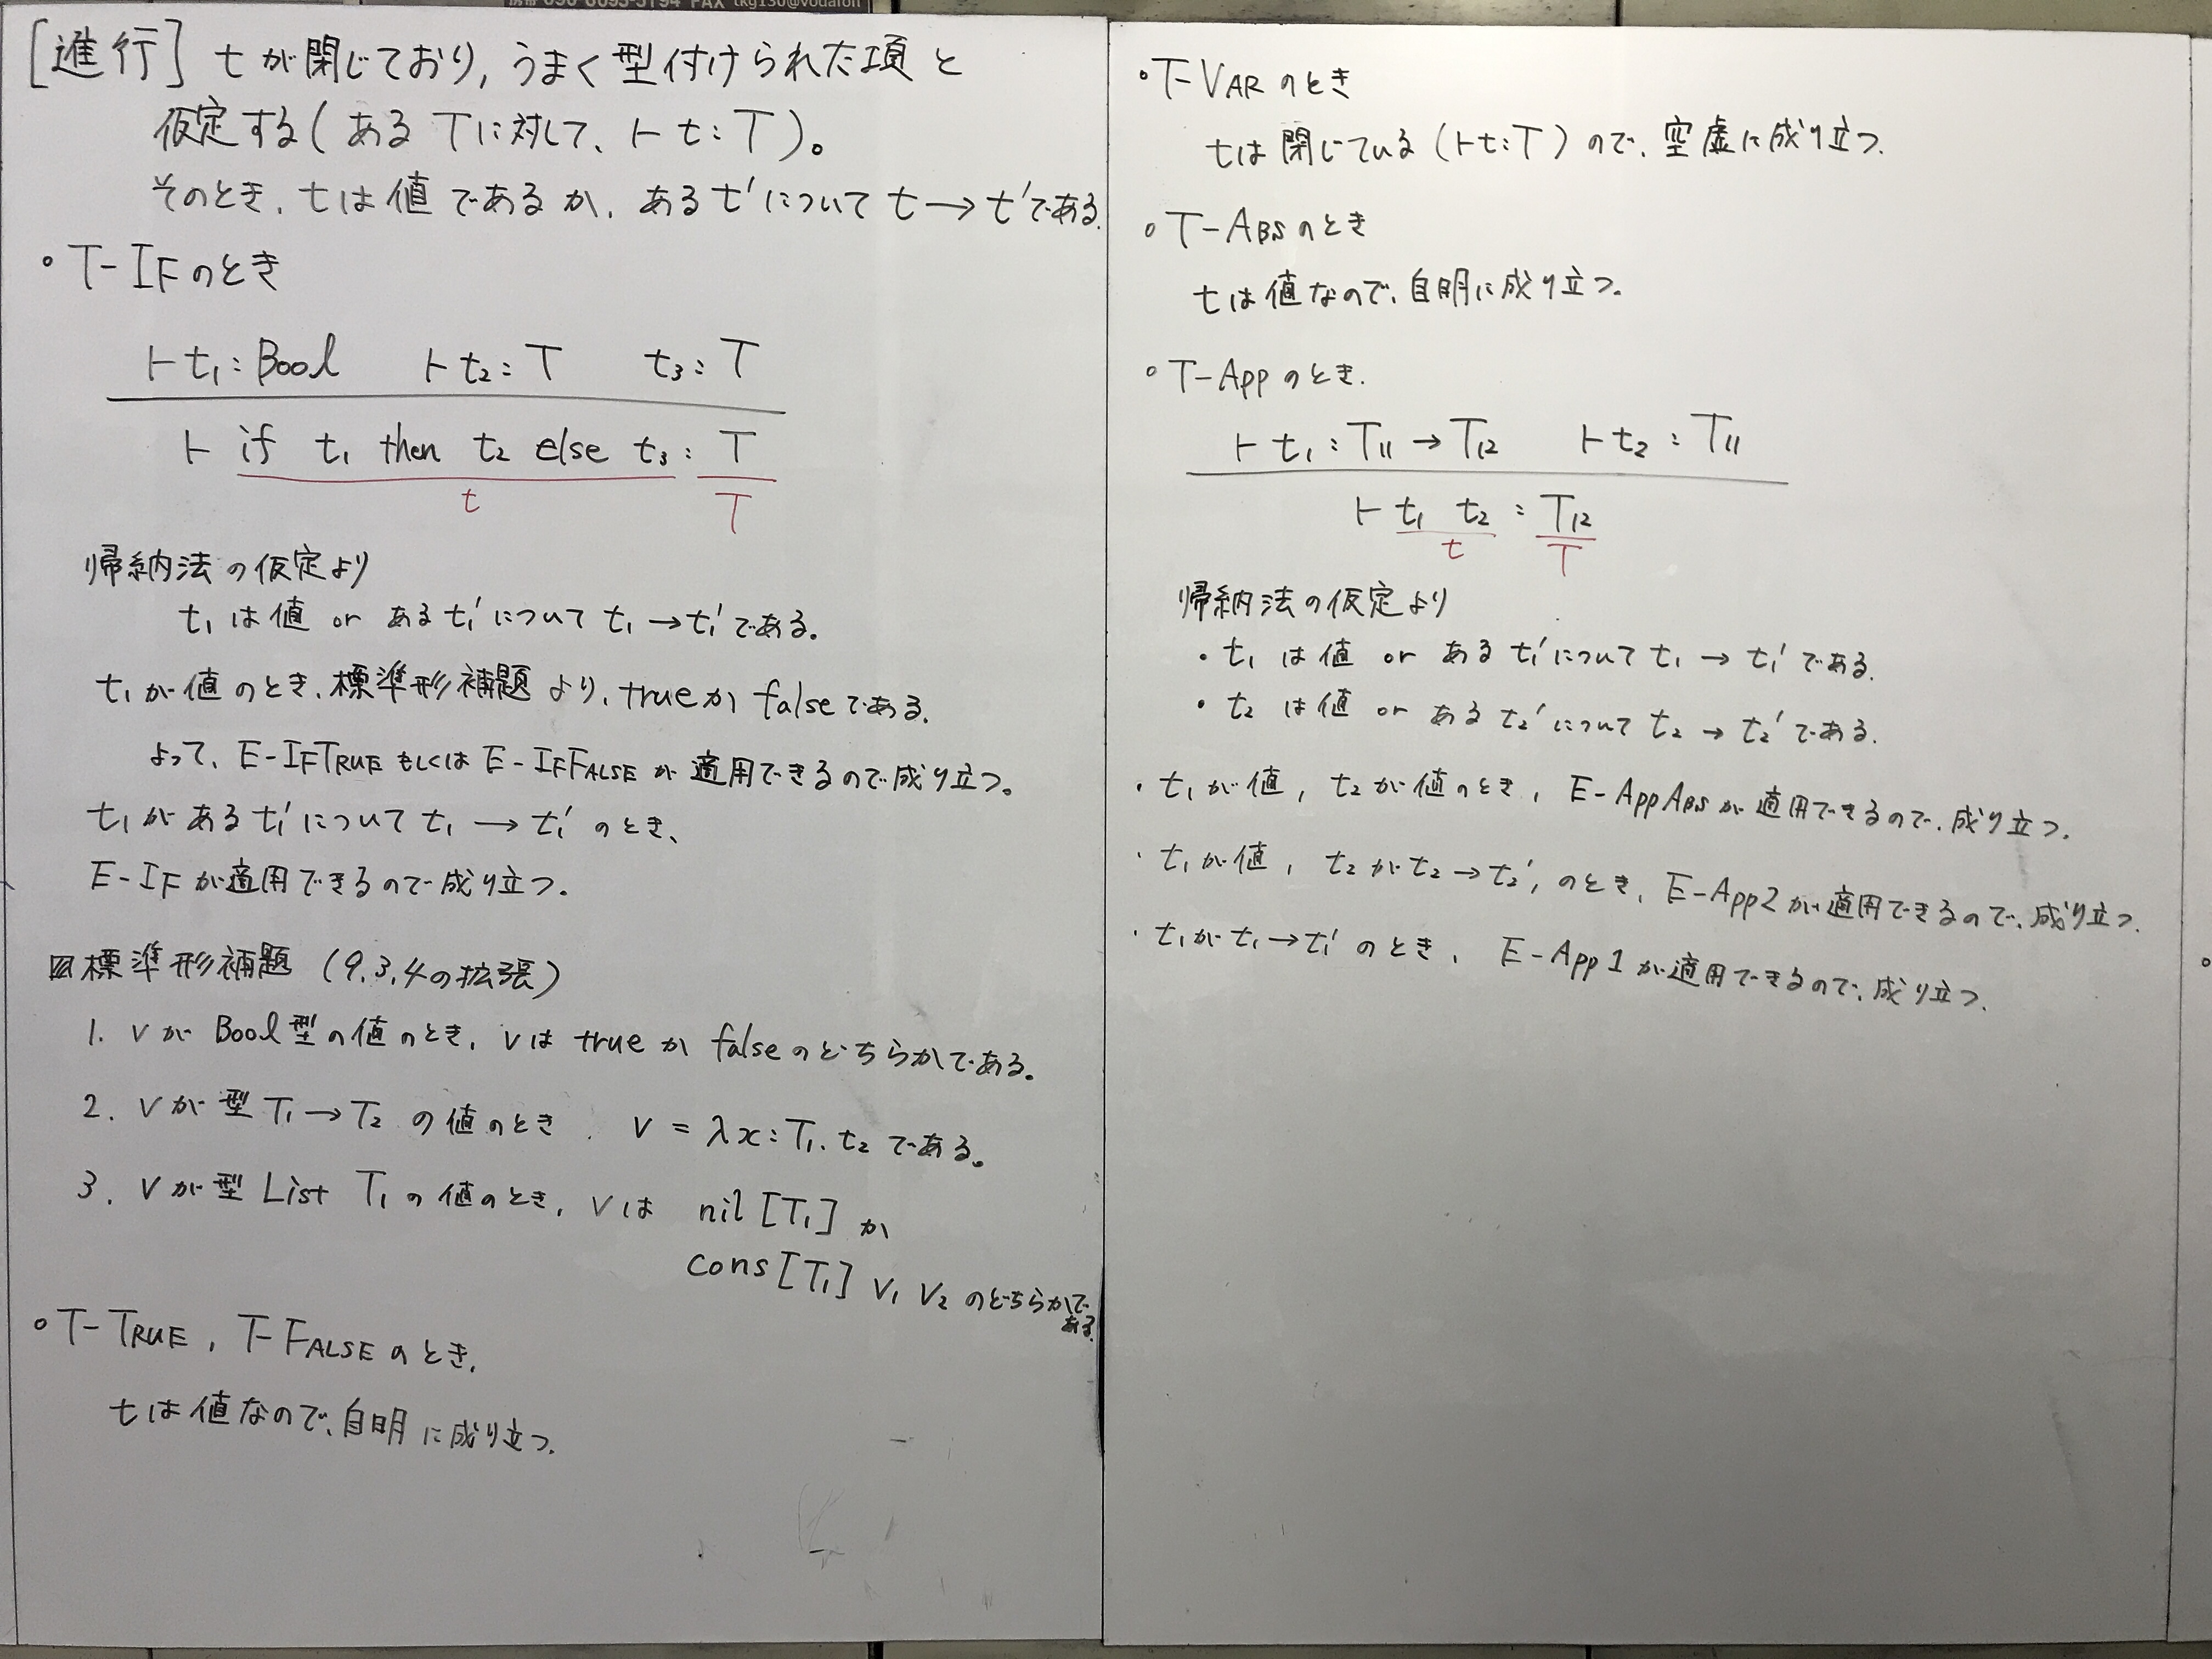 [進行] tが閉じており, うまく型付けられた項と
仮定する(ある Tに対して、⊢ t : T)。
そのとき、tは値であるか、ある t'について t → t'である.
。T-IFのとき
⊢ t₁ : Bool ⊢ t₂ : T t₃ : T
⊢ if t₁ then t₂ else t₃ : T
t T
帰納法の仮定より
t₁ は値 or ある t₁'について t₁ → t₁'である。
t₁が値のとき、標準形補題より、trueか falseである.
よって、E-IFTRUE もしくは E-IFFALSE が適用できるので成り立つ。
t₁がある t₁'について t₁ → t₁' のとき、
E-IFが適用できるので成り立つ.
標準形補題 (9.3.4の拡張)
1. vが Bool型の値のとき, vは trueか falseのどちらかである。
2. vが型 T₁ → T₂ の値のとき. v = λx:T₁. t₂ である。
3. vが型 List T₁の値のとき, vは nil [T₁] か
cons [T₁] v₁ v₂ のどちらかで
ある.
。T-TRUE, T-FALSEのとき.
tは値なので、自明に成り立つ.
。T-VARのとき
tは閉じている(⊢t:T)ので、空虚に成り立つ.
。T-ABSのとき
tは値なので、自明に成り立つ.
。T-Appのとき.
⊢ t₁ : T₁₁ → T₁₂ ⊢ t₂ : T₁₁
⊢ t₁ t₂ : T₁₂
t T
帰納法の仮定より
・t₁ は値 or ある t₁'について t₁ → t₁' である.
・t₂ は値 or ある t₂'について t₂ → t₂' である.
・t₁が値, t₂が値のとき, E-AppABSが適用できるので、成り立つ.
・t₁が値, t₂が t₂ → t₂', のとき, E-App2が適用できるので、成り立つ.
・t₁が t₁ → t₁' のとき, E-App1が適用できるので、成り立つ.